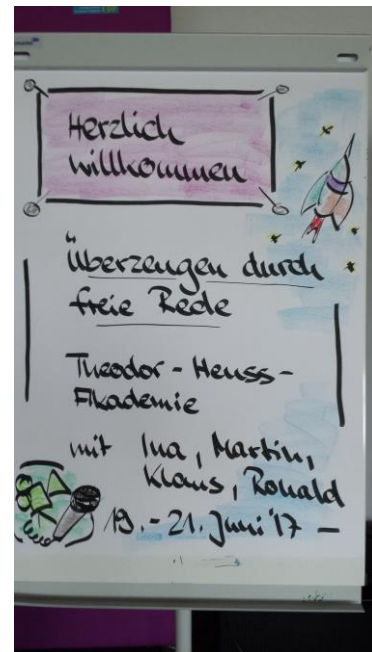 Herzlich
willkommen
Überzeugen durch
freie Rede
Theodor-Heuss-
Akademie
mit Ina, Martin,
Klaus, Ronald
19.-21. Juni '17 -